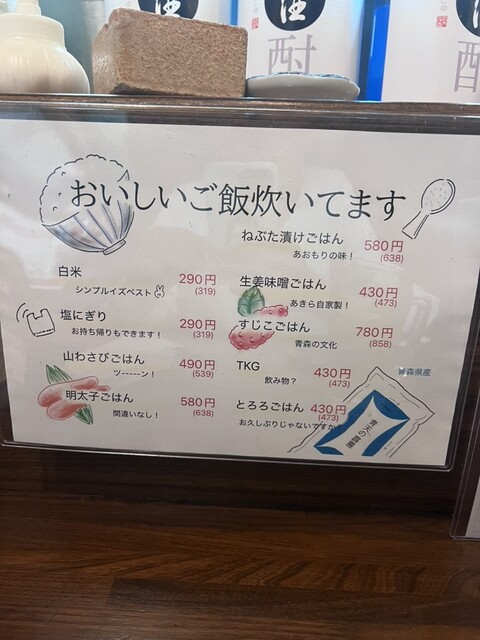 酒
酎
酎
おいしいご飯炊いてます
白米
シンプルイズベスト
290円
(319)
塩にぎり
お持ち帰りもできます!
290円
(319)
山わさびごはん
ツ-----ン!
490円
(539)
明太子ごはん
間違いなし!
580円
(638)
ねぶた漬けごはん
あおもりの味!
580円
(638)
生姜味噌ごはん
あきら自家製!
430円
(473)
すじこごはん
青森の文化
780円
(858)
TKG
飲み物?
430円
(473)
とろろごはん
お久しぶりじゃないですか
430円
(473)
青森県産
青天の霹靂